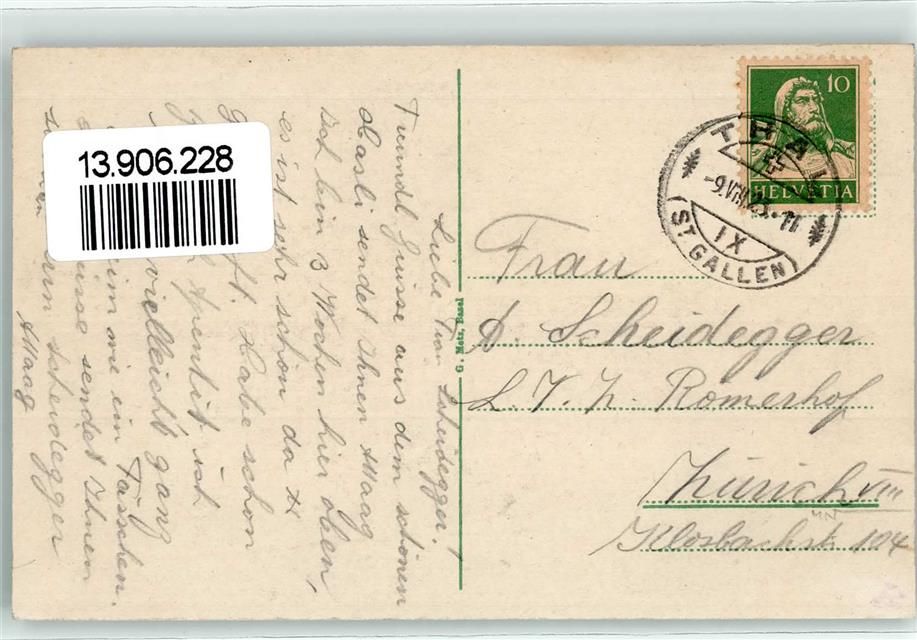 13.906.228
Liebe Frau Scheidegger!
Freundl. Grüsse aus dem schönen
Hasli sendet Ihnen Maag
Ich bin 3 Wochen hier oben,
es ist sehr schön da H
Habe schon
ich
vielleicht ganz
ein Fässchen.
sendet Ihnen
scheidegger
Maag
G. Metz, Basel
10
HELVETIA
THAL
-9.VIII. 11
IX
(ST GALLEN)
Frau
A. Scheidegger
L. V. Z. Römerhof
Zürich VIII
Klosbachstr. 104